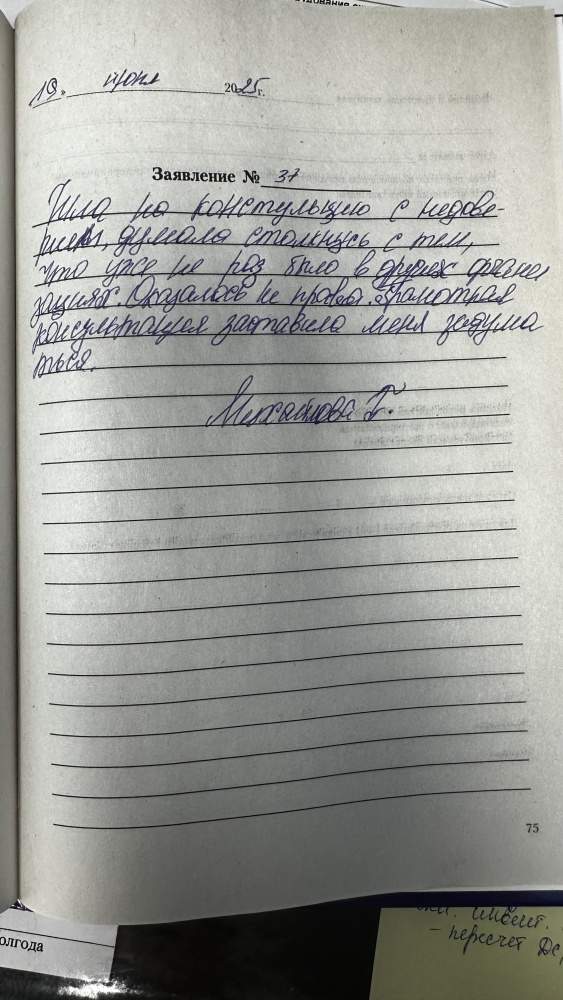 19 » июня 2025 г.
Заявление № 37
Шла на констульцию с недове-
рием, думала столкнусь с тем,
что уже не раз было в других органи
зациях. Оказалось не права. Грамотная
консультация заставила меня задума
ться.
Михайлова Г.
75
олгода
- пересчет